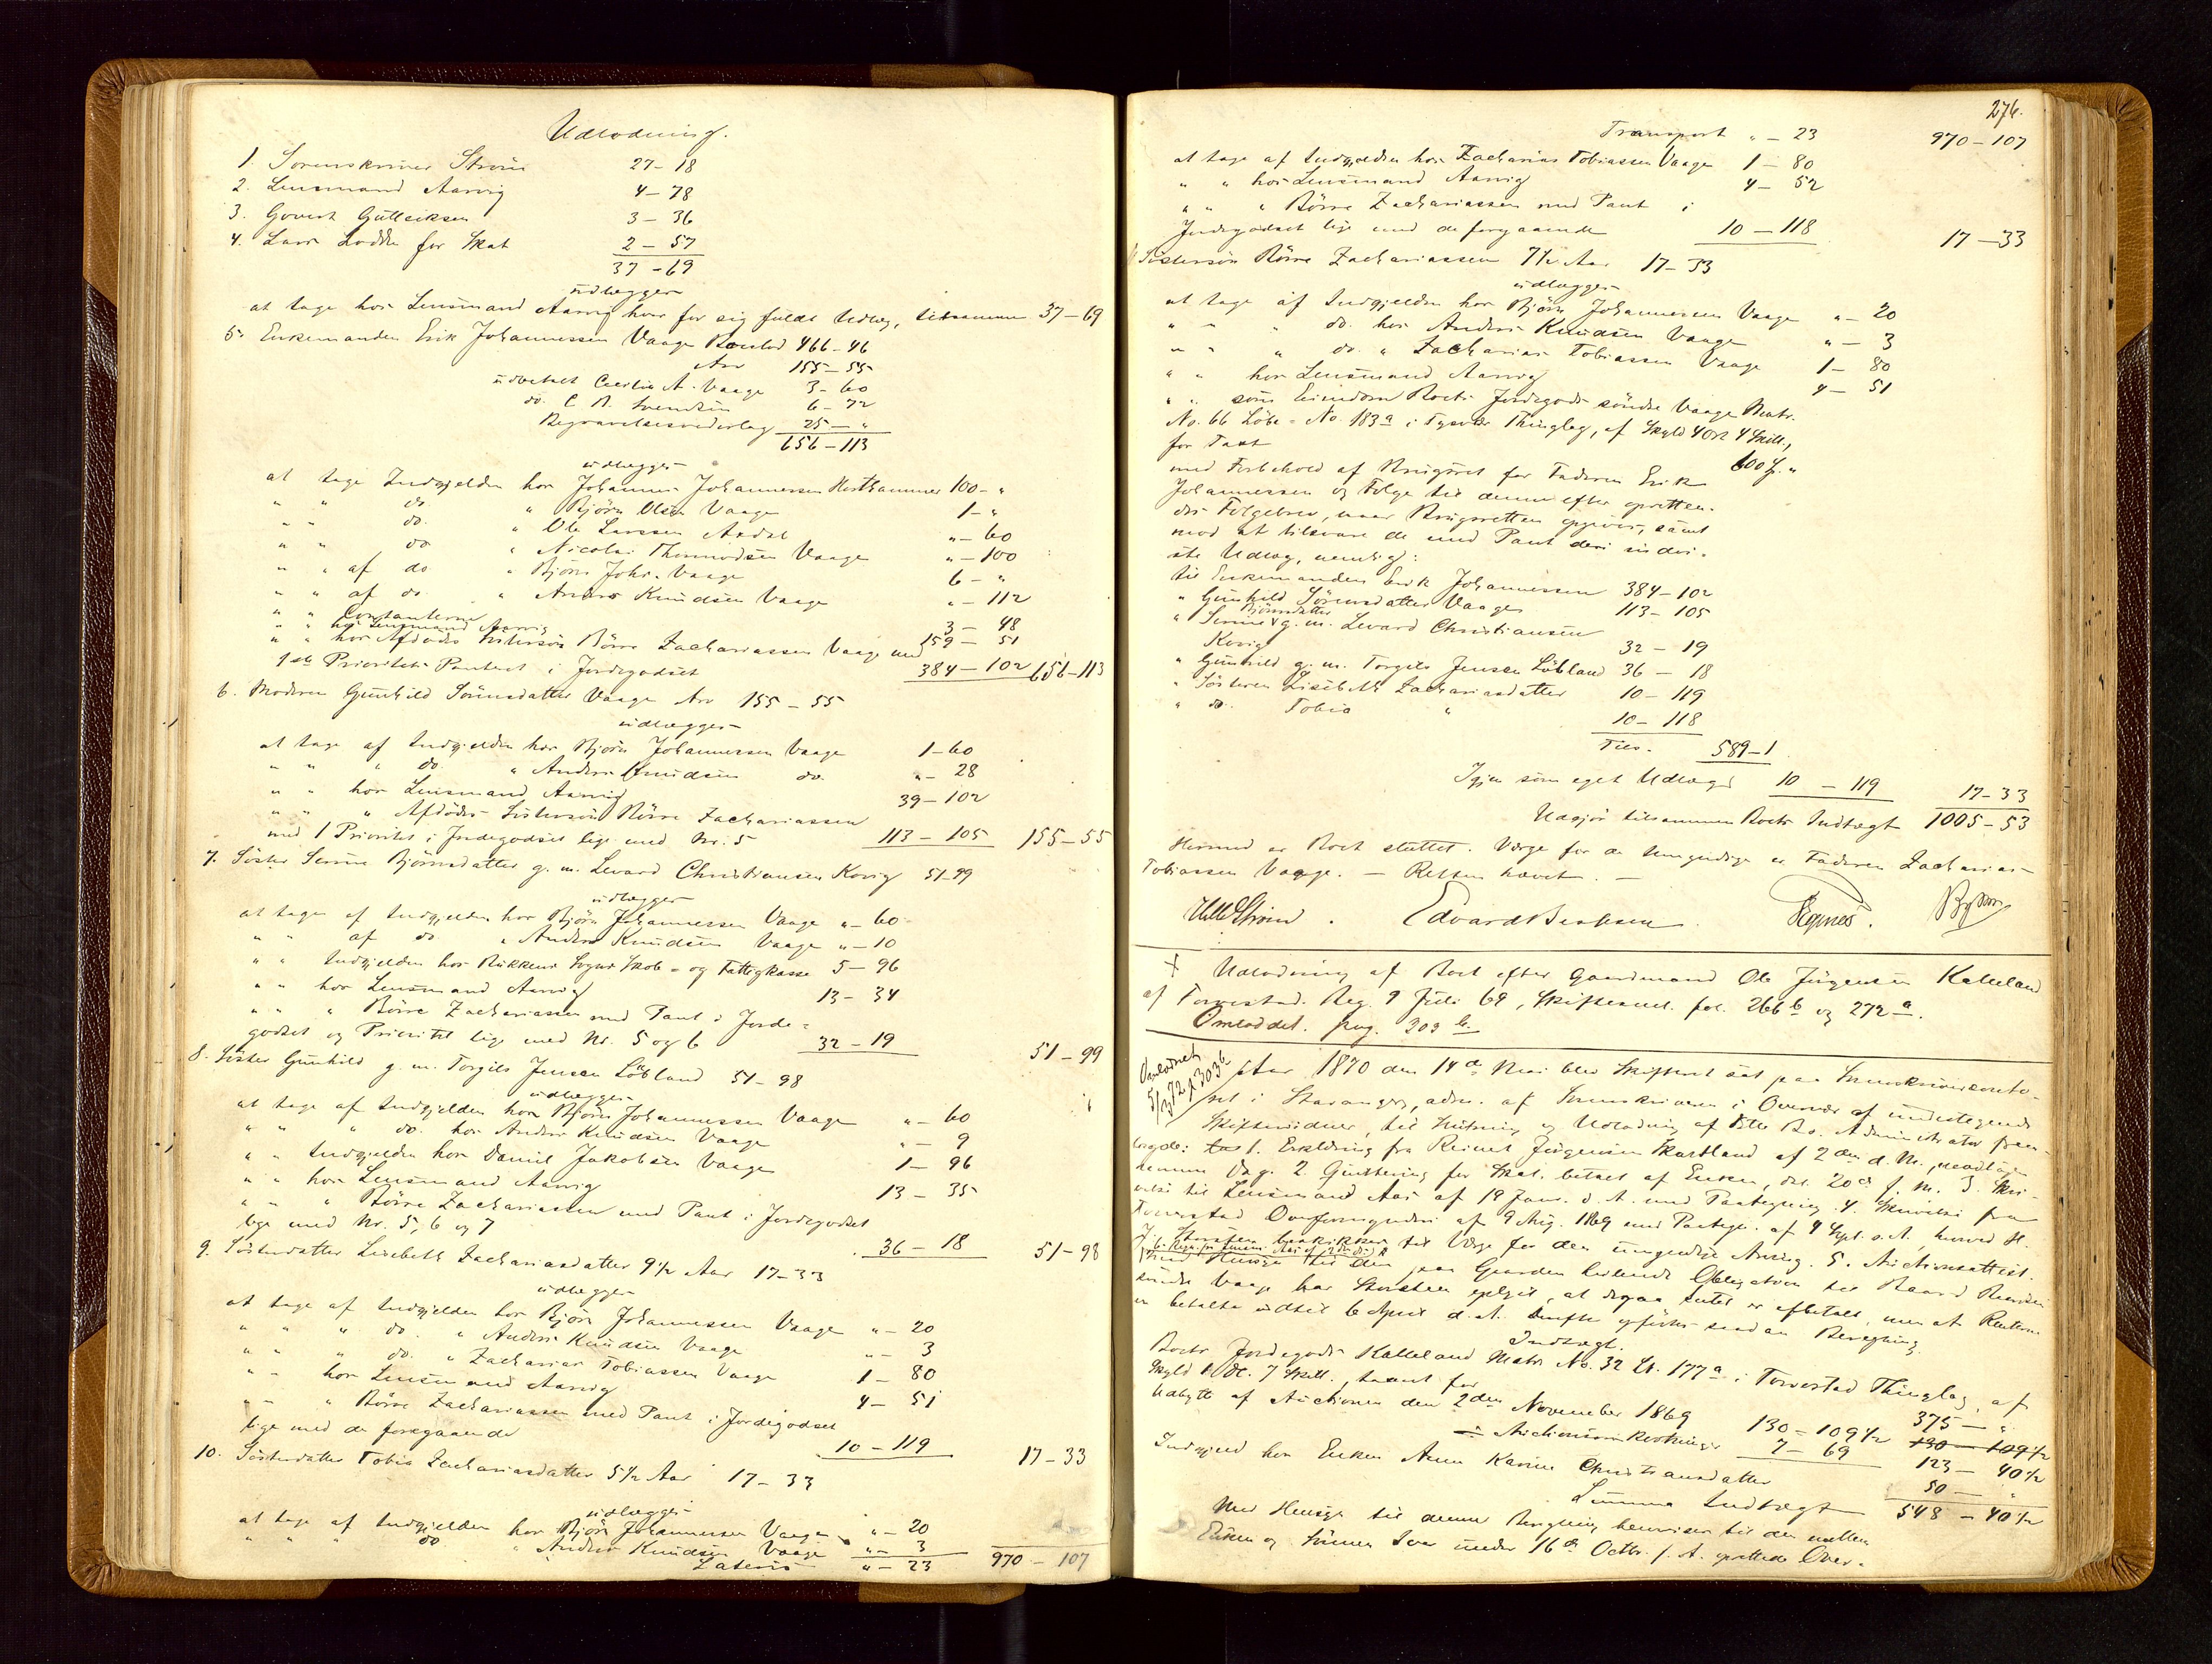 Udlodning.
1. Sorenskriver Strøm 27-18
2. Lensmand Aarvig 4-78
3. Govert Gulleiksen 3-36
4. Lars Lodden for Skat 2-57
37-69
udlægges
at tage hos Lensmand Aarvig hver for sig fuldt Udlæg, tilsammen 37-69
5. Enkemanden Erik Johannessen Vaage Boeslod 466-46
Arv 155-55
udbetalt Cecilia A. Vaage 3-60
do. C. B. Svendsen 6-72
Begravelsesvederlag 25- "
656-113
udlægges
at tage Indgjælden hos Johannes Johannessen Hesthammer 100- "
" " do " Bjørn Olsen Vaage 1- "
" " do. " Ole Larssen Aadel "-60
" " do " Nicolai Thormodsen Vaage "-100
" " af do " Bjørn Johs. Vaage 6- "
" " af do " Anders Knudsen Vaage "-112
" " Contanterne 3-48
" " hos Lensmand Aarvig 159-51
" " hos Afdødes Søstersøn Børre Zachariassen Vaage med
1ste Prioritets Panteret i Jordegodset 384-102 656-113
6. Moderen Gunhild Sørensdatter Vaage Arv 155-55
udlægges
at tage af Indgjælden hos Bjørn Johannessen Vaage 1-60
" " " do. " Anders Knudsen do. "-28
" " hos Lensmand Aarvig 39-102
" " " Afdødes Søstersøn Børre Zachariassen
med 1 Prioritet i Jordegodset lige med Nr. 5 113-105 155-55
7. Søster Serine Bjørnsdatter g. m. Levard Christiansen Kovig 51-99
udlægges
at tage af Indgjælden hos Bjørn Johannessen Vaage "-60
" " af do " Anders Knudsen Vaage "-10
" " Indgjælden hos Bukkens Sogns Skole- og Fattigkasse 5-96
" " hos Lensmand Aarvig 13-34
" " " Børre Zachariassen med Pant i Jorde-
godset og Prioritet lige med Nr. 5 og 6 32-19 51-99
8. Søster Gunhild g. m. Torgils Jensen Løbland 51-98
udlægges
at tage af Indgjælden hos Bjørn Johannessen Vaage "-60
" " " do. hos Anders Knudsen Vaage "-9
" " Indgjælden hos Daniel Jakobsen Vaage 1-96
" " hos Lensmand Aarvig 13-35
" " " Børre Zachariassen med Pant i Jordegodset
lige med Nr. 5, 6 og 7 36-18 51-98
9. Søsterdatter Lisebeth Zachariasdatter 9½ Aar 17-33
udlægges
at tage af Indgjælden hos Bjørn Johannessen Vaage "-20
" " " do. " Anders Knudsen Vaage "-3
" " " do. " Zacharias Tobiassen Vaage 1-80
" " hos Lensmand Aarvig 4-51
" " " Børre Zachariassen med Pant i Jordegodset
lige med de foregaaende 10-119 17-33
10. Søsterdatter Tobia Zachariasdatter 5½ Aar 17-33
udlægges
at tage af Indgjælden hos Bjørn Johannessen Vaage "-20
" " " do " Anders Knudsen Vaage "-3
Lateris "-23 970-107
276.
Transport "-23 970-107
at tage af Indgjælden hos Zacharias Tobiassen Vaage 1-80
" " hos Lensmand Aarvig 4-52
" " " Børre Zachariassen med Pant i
Jordegodset lige med de foregaaende 10-118 17-33
11 Søstersøn Børre Zachariassen 7½ Aar 17-33
udlægges
at tage af Indgjælden hos Bjørn Johannessen Vaage "-20
" " " do. hos Anders Knudsen Vaage "-3
" " " do. " Zacharias Tobiassen Vaage 1-80
" " hos Lensmand Aarvig 4-51
" " som Eiendom Boets Jordegods søndre Vaage Matr.
No. 66 Løbe-No. 183a i Tysvær Thinglag, af Skyld 4 Ort 4 Skill.,
for Taxt 600 f. "
med Forbehold af Brugsret for Faderen Erik
Johannessen og Følge til denne efter opretten-
des Følgebrev, naar Brugsretten opgives, samt
mod at tilsvare de med Pant deri indvi-
ste Udlæg, nemlig:
til Enkemanden Erik Johannessen 384-102
" Gunhild Sørensdatter Vaage 113-105
" Serine Bjørnsdatter g. m. Levard Christiansen
Kovig 32-19
" Gunhild g. m. Torgils Jensen Løbland 36-18
" Søsteren Lisebeth Zachariasdatter 10-119
" do. Tobia " 10-118
Tils. 589-1
Igjen som eget Udlæg 10-119 17-33
Udgjør tilsammen Boets Indtægt 1005-53
Hermed er Boet sluttet. Værge for de Umyndige er Faderen Zacharias
Tobiassen Vaage. — Retten hævet. —
Strøm. Edvard Berntsen. Egenes.
+ Udlodning af Boet efter Gaardmand Ole Jørgensen Kalleland
af Torvestad. Reg. 9 Juli 69, Skiftesaml. fol. 266 b og 272 a.
Omloddet. pag. 303 b.
Omloddet 5/3 72 p 303 b
Aar 1870 den 14de Mai blev Skifteret sat paa Sorenskriverconto-
ret i Stavanger, adm. af Sorenskriveren i Overvær af undertegnede
Skiftevidner, til Slutning og Udlodning af dette Bo. Administrator frem-
lagde: 1. Erklæring fra Reinert Jørgensen Skartland af 2den d. M.,
2. Qvittering for Skat, betalt af Enken, dat. 20de f. M. 3. Skri-
velse til Lensmand Aas af 19 Janr. d. A. med Paategning 4. Skrivelse fra
Torvestad Overformynderi af 9 Aug. 1869 med Paategn. af 4 Sept. s. A. hvorved
til Værge for den umyndige Arving. 5. Auctionsattest.
Med Hensyn til den paa Gaarden heftende Obligation til Baard
søndre Vaage har oplyst, at derpaa intet er afbetalt, men at Renterne
er betalte indtil 6 April d. A. Derefter opførtes saadan Beregning
Indtægt.
Boets Jordegods Kalleland Matr. No. 32 Lb. 177a i Torvestad Thinglag, af
Skyld Ort. 7 Skill. taxeret for 375- "
Udbytte af Auctionen den 2den November 1869 130-109½ 130-109½
÷ Auctionsomkostninger 7-69 123-40½
Indgjæld hos Enken Anne Karine Christiansdatter 50- "
Summa Indtægt 548-40½
Med Hensyn til denne henvises til den mellem
Enken og Sønnen Ivar under 16de Octbr. f. A. oprettede Over-